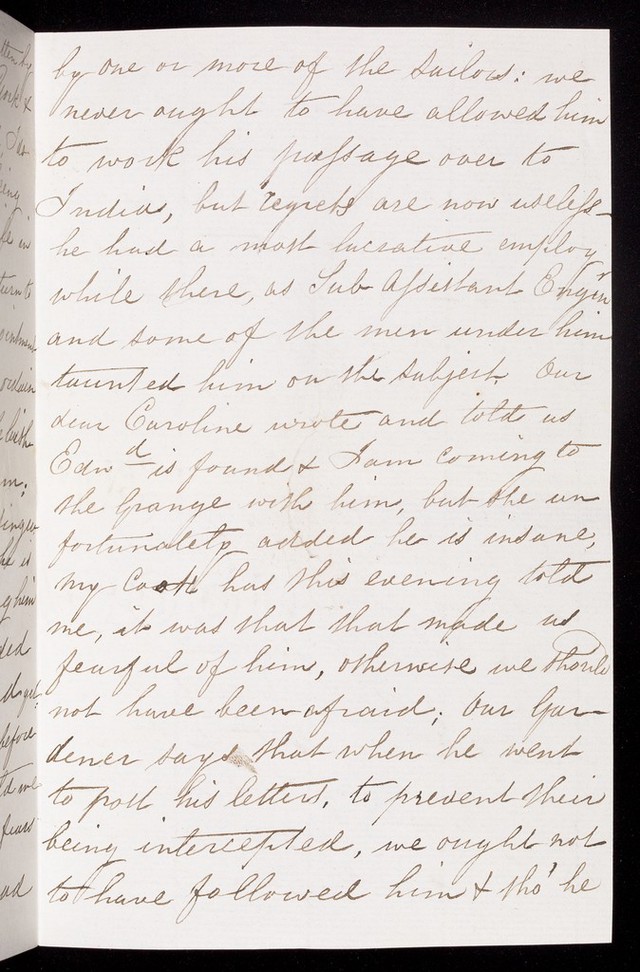 by one or more of the sailors: we
never ought to have allowed him
to work his passage over to
India, but regrets are now useless-
he had a most lucrative employ
while there, as Sub Assistant Engin^r
and some of the men under him
taunted him on the subject. Our
dear Caroline wrote and told us
Edw^d is found & I am coming to
the Grange with him, but she un
fortunately added he is insane,
my Cook has this evening told
me, it was that that made us
fearful of him, otherwise we should
not have been afraid; Our Gar-
dener says that when he went
to post his letters, to prevent their
being intercepted, we ought not
to have followed him & tho' he